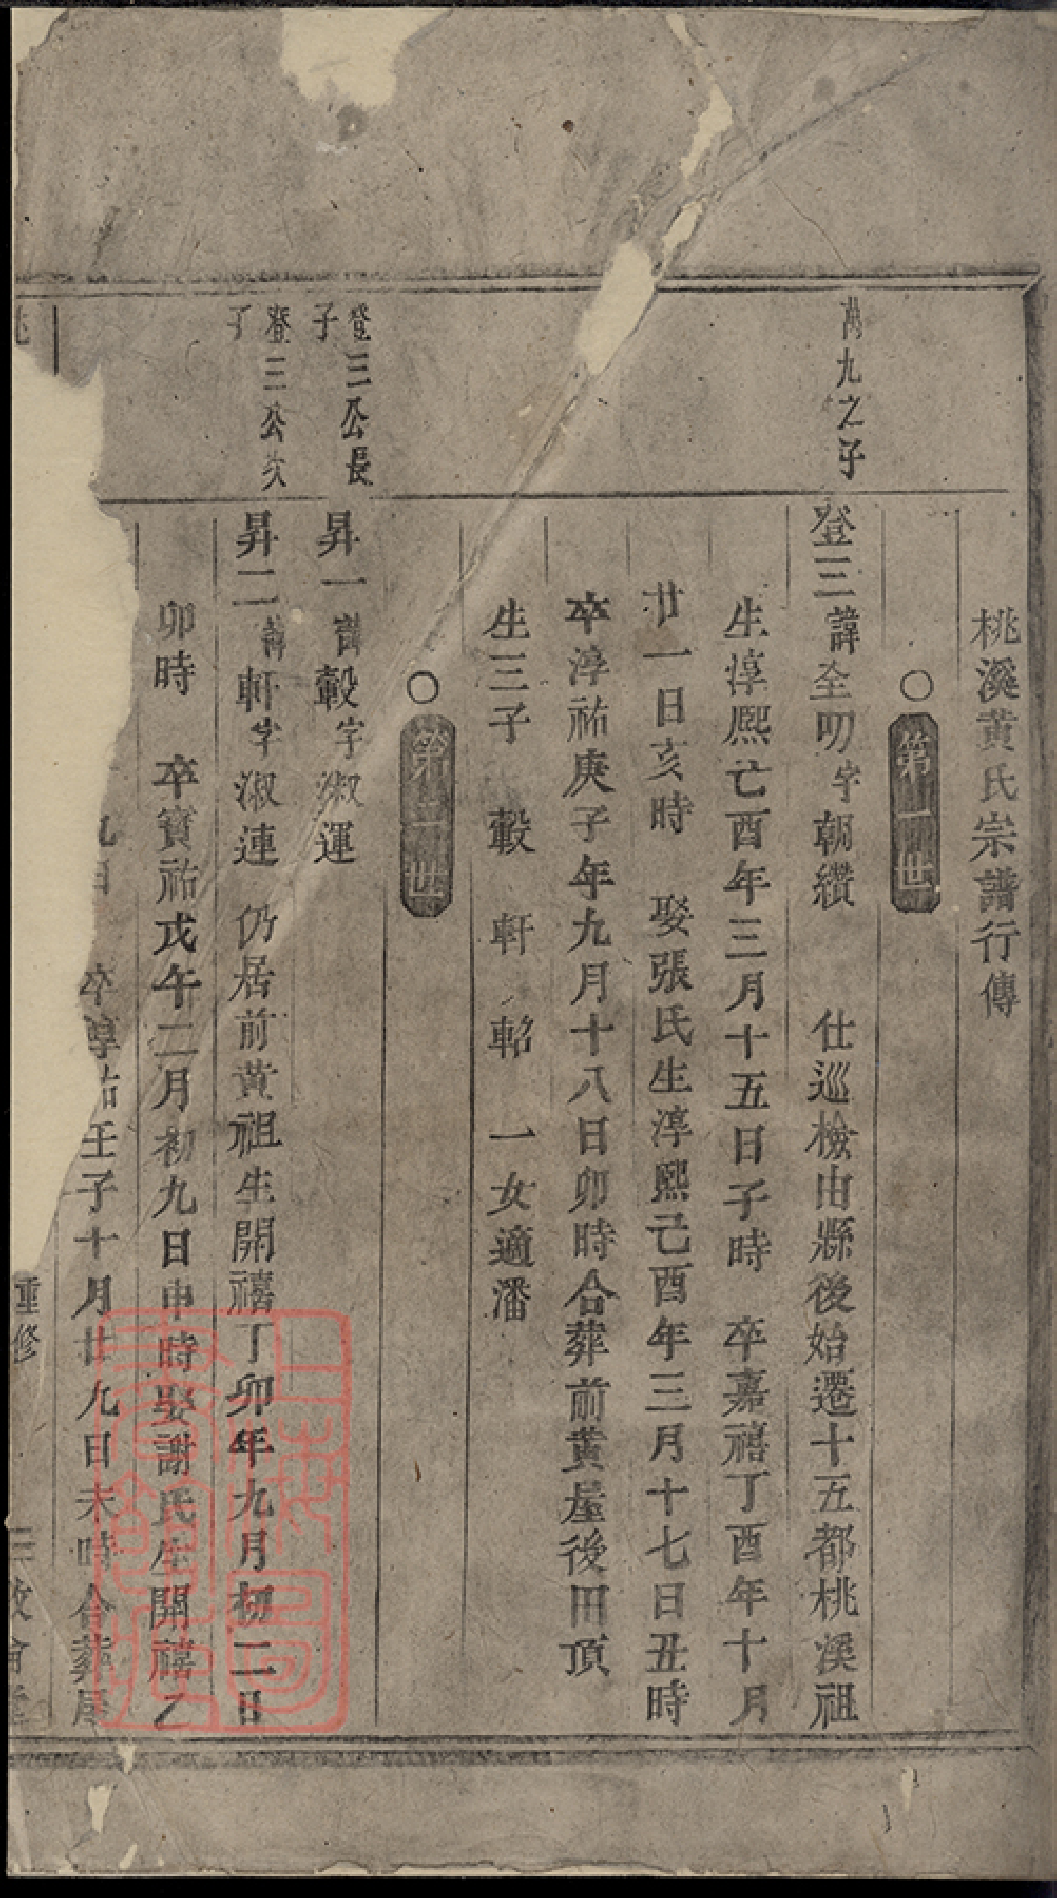 桃溪黄氏宗譜行傳
○第一世
萬九之子
登三諱全叨字朝纘 仕巡檢由縣後始遷十五都桃溪祖
生淳熙己酉年三月十五日子時 卒嘉禧丁酉年十月
廿一日亥時 娶張氏生淳熙己酉年三月十七日丑時
卒淳祐庚子年九月十八日卯時合葬前黄屋後田頂
生三子 轂 軒 軺 一女適潘
○第二世
登三公長子
昇一諱轂字淑運
登三公次子
昇二諱軒字淑連 仍居前黄祖生開禧丁卯年九月初二日
卯時 卒寳祐戊午二月初九日申時娶謝氏生開禧乙
九日 卒淳祐壬子十月廿九日未時合葬屋
重修 三
上海圖書館藏